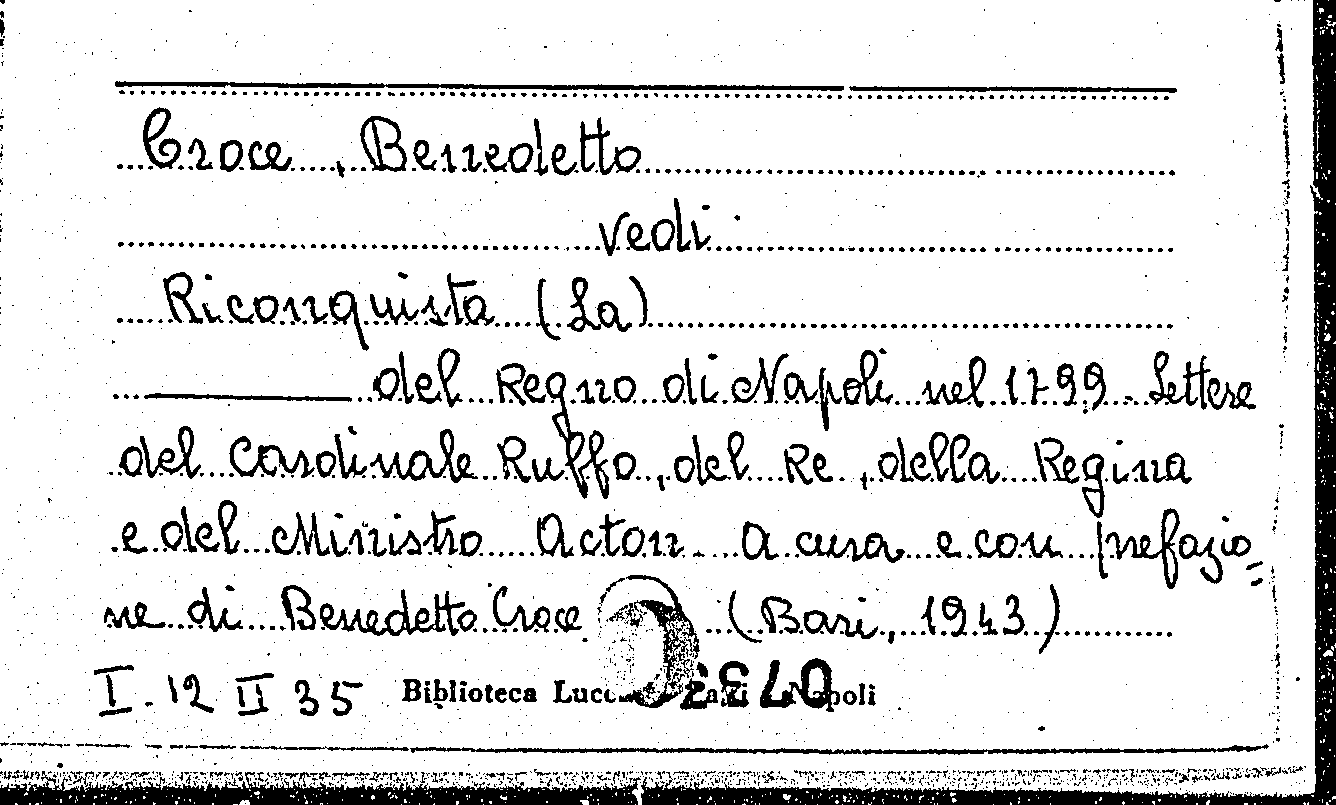 Croce, Benedetto
vedi
Riconquista (La)
del Regno di Napoli nel 1799. Lettere
del Cardinale Ruffo, del Re, della Regina
e del Ministro Acton. A cura e con prefazio=
ne di Benedetto Croce (Bari, 1943)
I. 12 II 35 Biblioteca Napoli